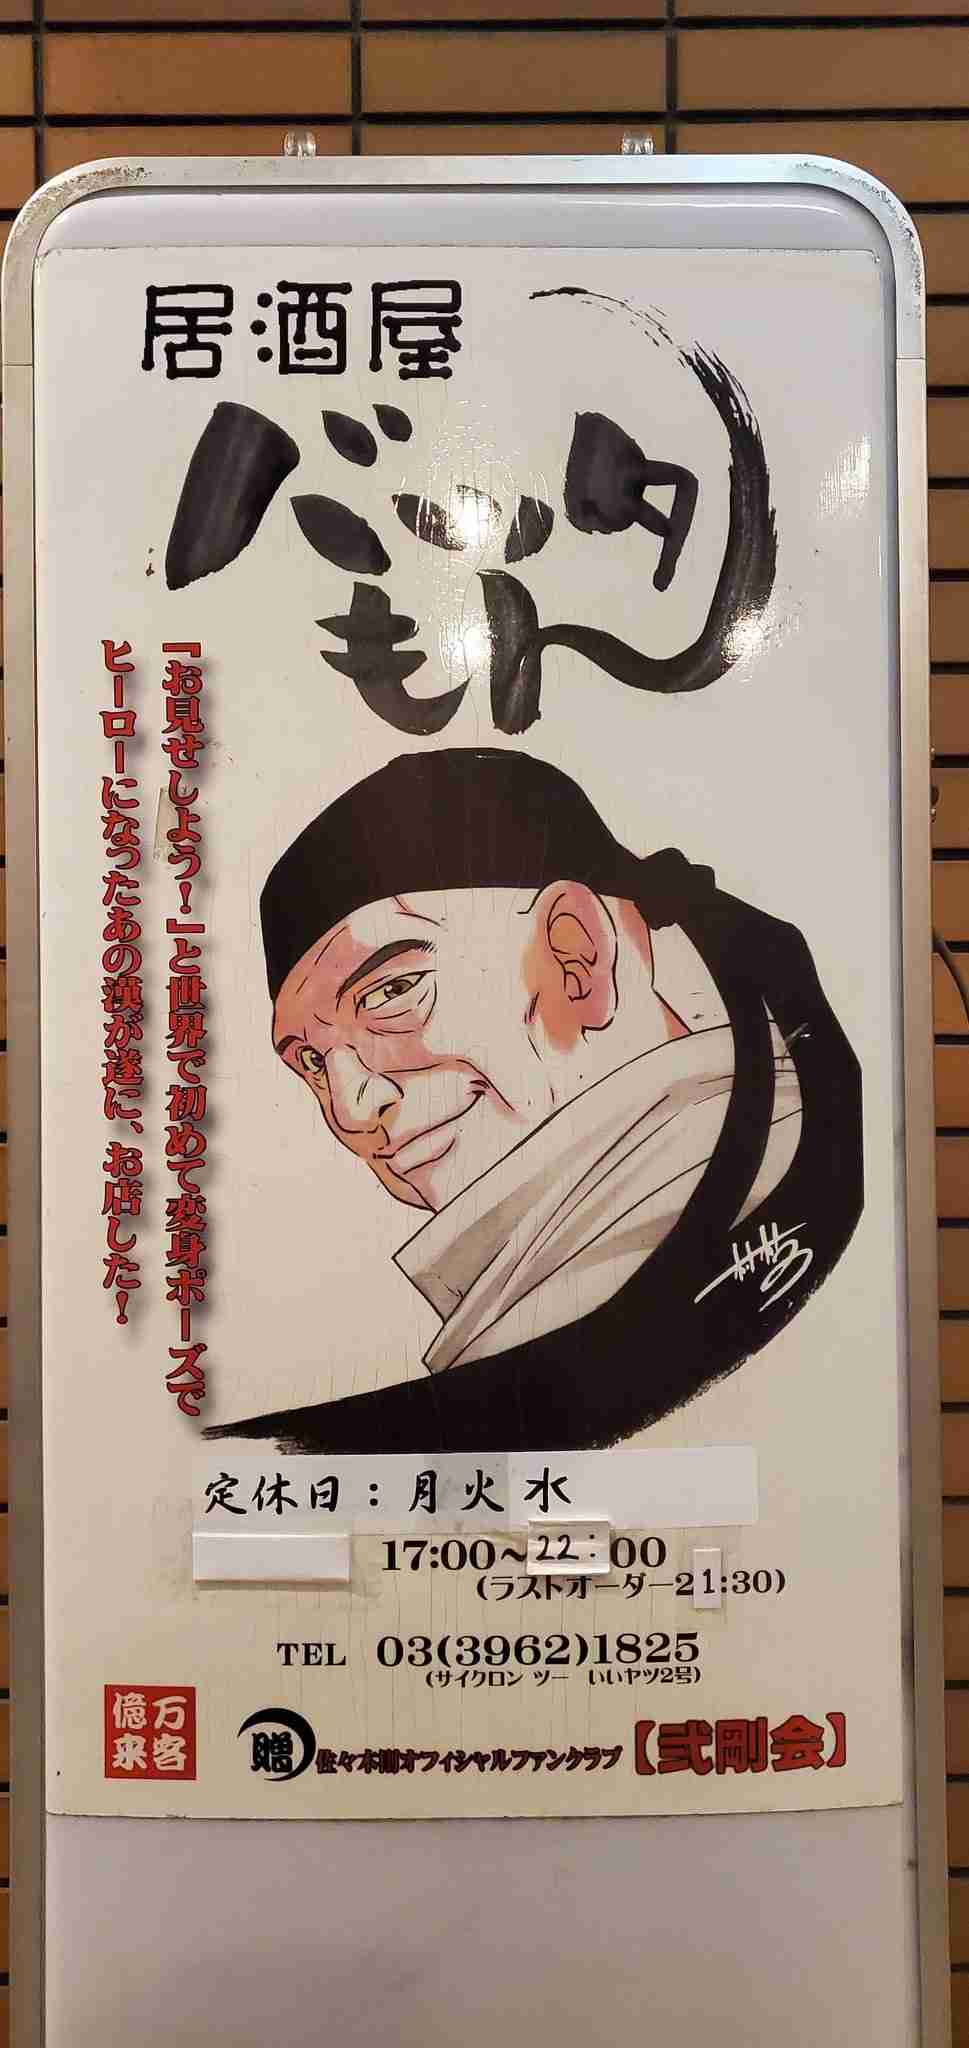 居酒屋
バッタ
もん
『お見せしよう!』と世界で初めて変身ポーズで
ヒーローになったあの漢が遂に、お店した!
定休日:月火水
17:00~22:00
(ラストオーダー21:30)
TEL 03(3962)1825
(サイクロン ツー いいヤツ2号)
億万
来客
贈 佐々木剛オフィシャルファンクラブ【弐剛会】